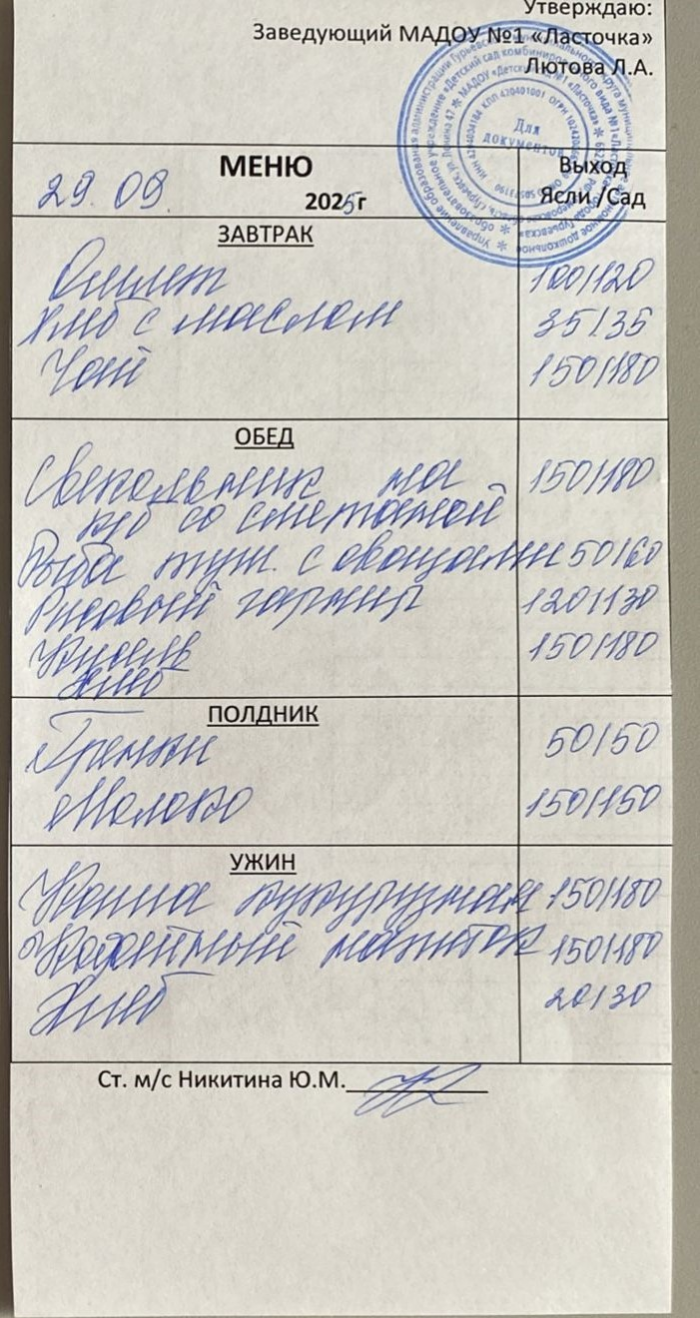 Утверждаю:
Заведующий МАДОУ №1 «Ласточка»
Лютова Л.А.
Для
документов
МЕНЮ
29.09 2025г
Выход
Ясли /Сад
ЗАВТРАК
Омлет 100/120
Хлеб с маслом 35/35
Чай 150/180
ОБЕД
Свекольник на 150/180
м/б со сметаной
Рыба туш. с овощами 50/60
Рисовый гарнир 120/130
Кисель 150/180
Хлеб
ПОЛДНИК
Гренки 50/50
Молоко 150/150
УЖИН
Каша кукурузная 150/180
Кофейный напиток 150/180
Хлеб 20/30
Ст. м/с Никитина Ю.М.